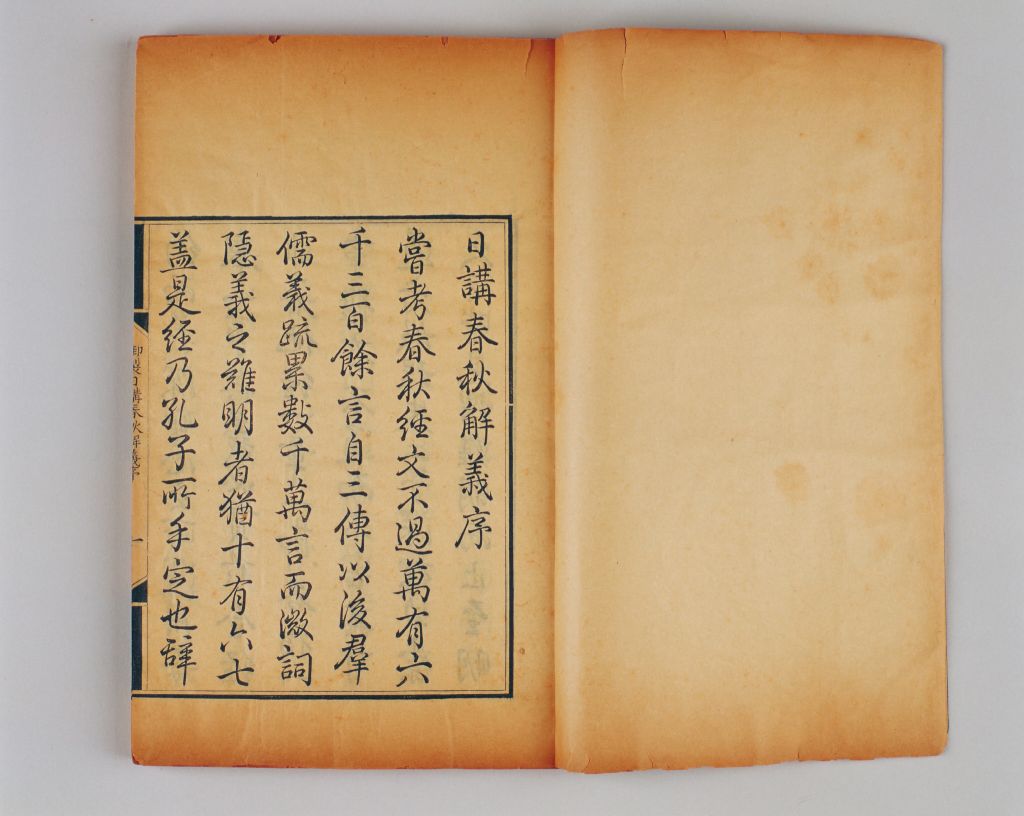 日講春秋解義序
嘗考春秋經文不過萬有六
千三百餘言自三傳以後羣
儒義疏累數千萬言而微詞
隱義之難明者猶十有六七
盖是經乃孔子所手定也辭
御製日講春秋解義序
一